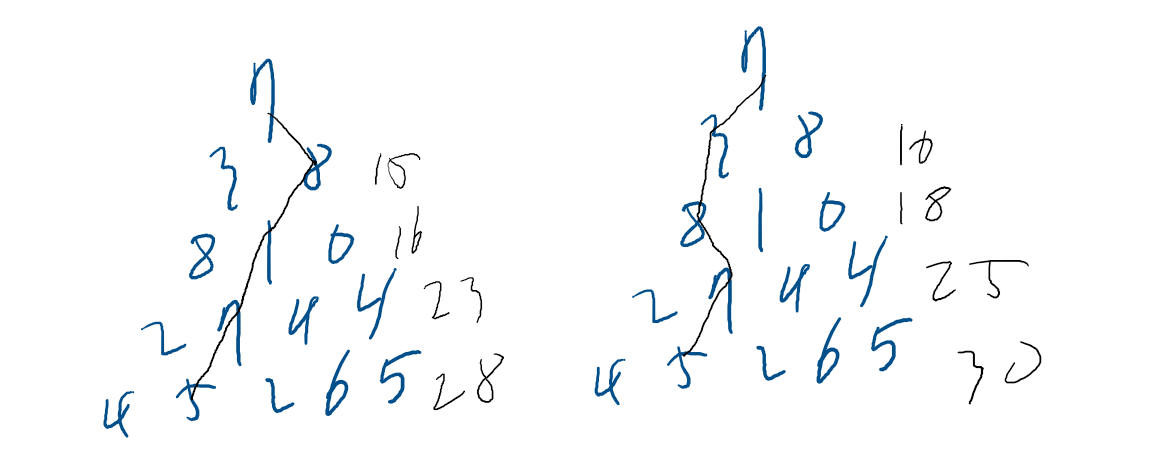 7
3 8 15
8 1 0 16
2 7 4 4 23
4 5 2 6 5 28
7
3 8 10
8 1 0 18
2 7 4 4 25
4 5 2 6 5 30